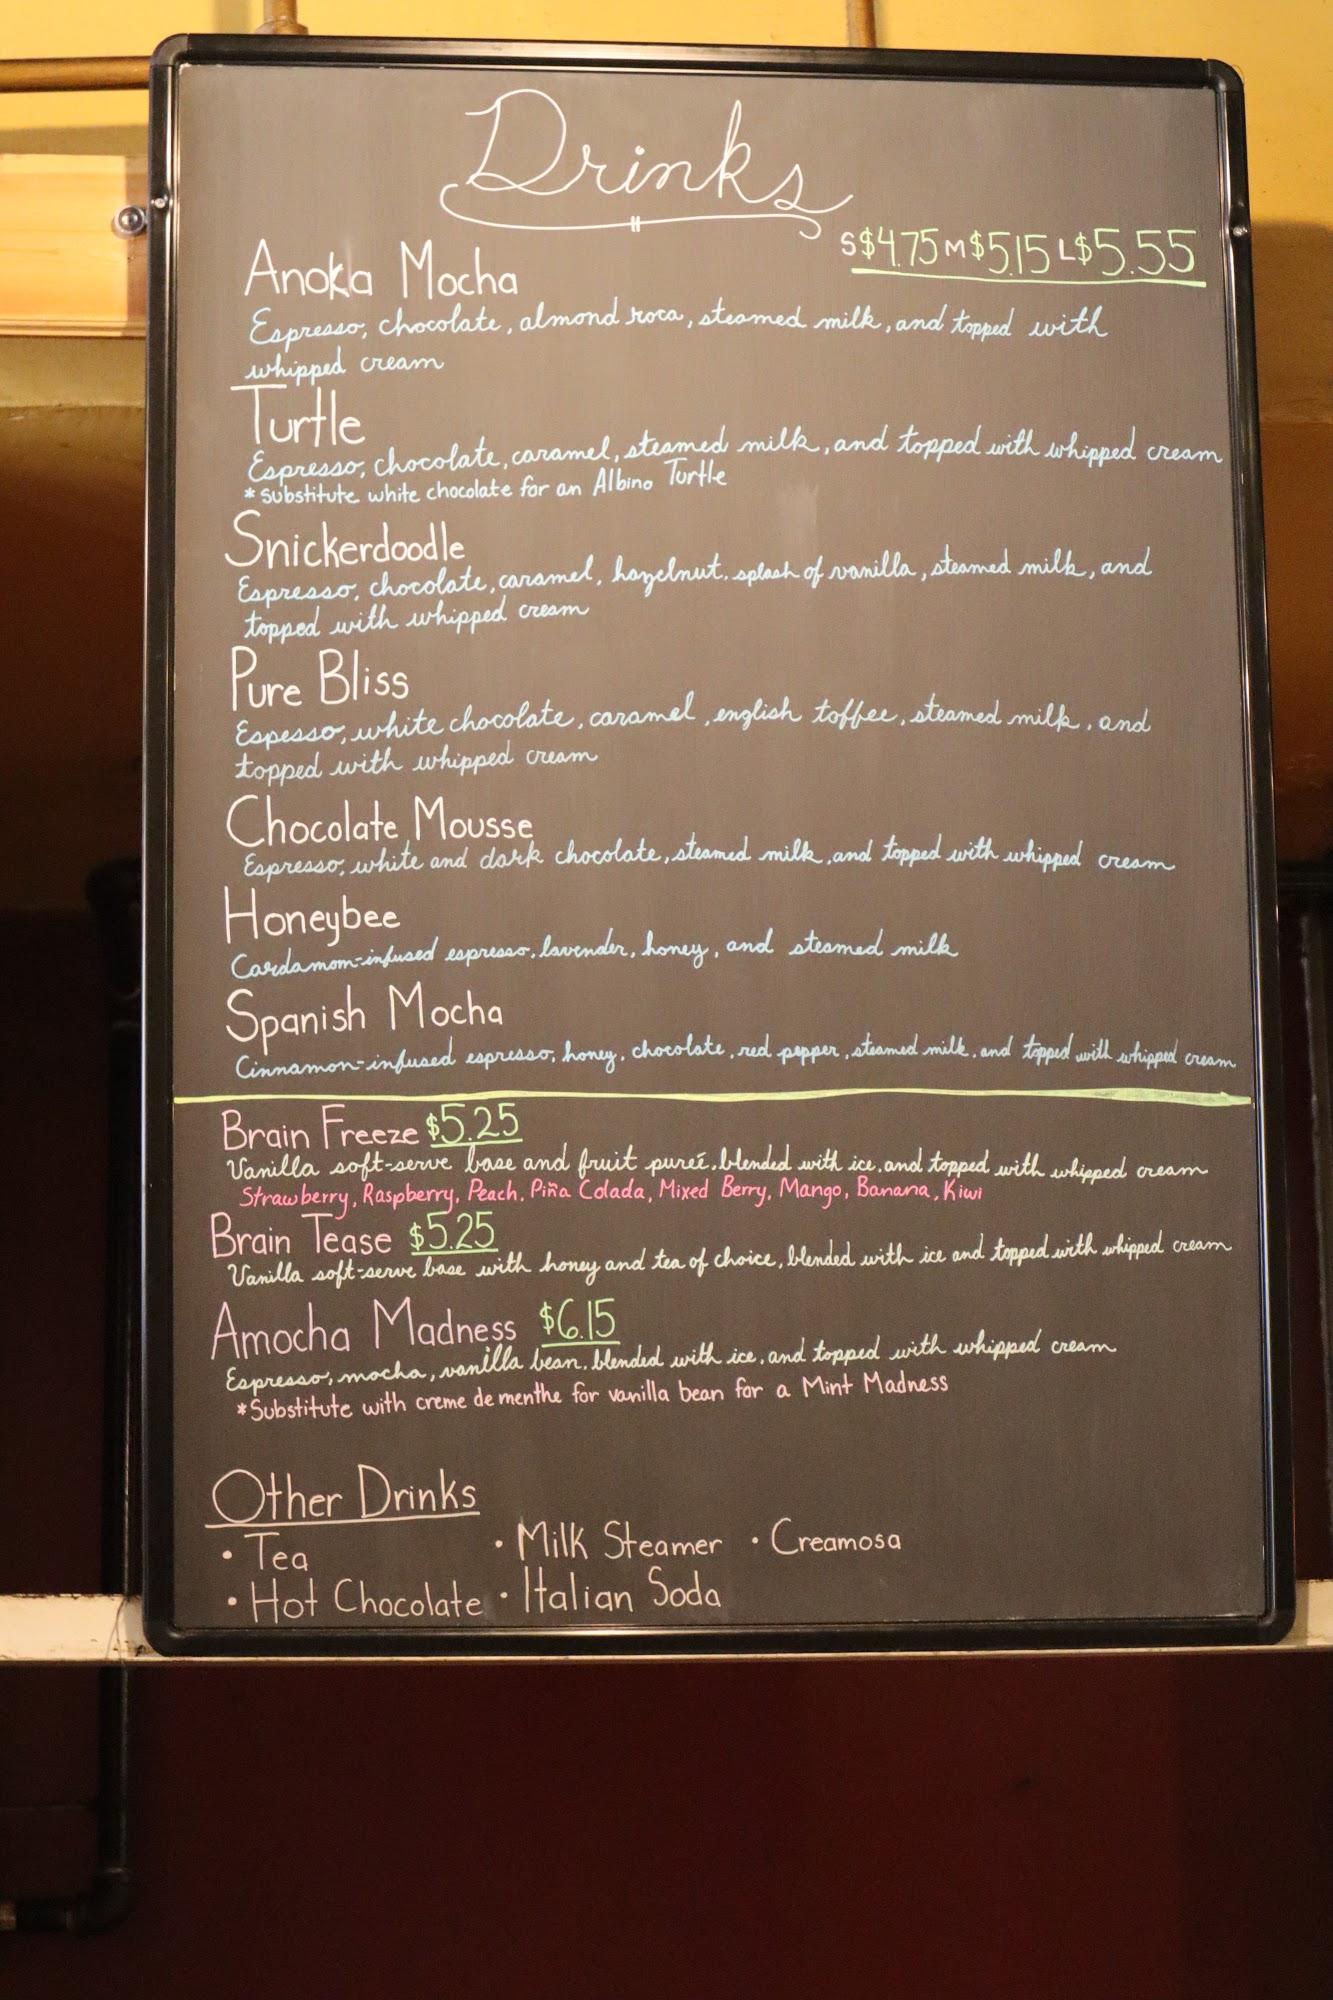 Drinks
S $4.75 M $5.15 L $5.55
Anoka Mocha
Espresso, chocolate, almond roca, steamed milk, and topped with
whipped cream
Turtle
Espresso, chocolate, caramel, steamed milk, and topped with whipped cream
*Substitute white chocolate for an Albino Turtle
Snickerdoodle
Espresso, chocolate, caramel, hazelnut, splash of vanilla, steamed milk, and
topped with whipped cream
Pure Bliss
Espesso, white chocolate, caramel, english toffee, steamed milk, and
topped with whipped cream
Chocolate Mousse
Espresso, white and dark chocolate, steamed milk, and topped with whipped cream
Honeybee
Cardamom-infused espresso, lavender, honey, and steamed milk
Spanish Mocha
Cinnamon-infused espresso, honey, chocolate, red pepper, steamed milk, and topped with whipped cream
Brain Freeze $5.25
Vanilla soft-serve base and fruit pureé, blended with ice, and topped with whipped cream
Strawberry, Raspberry, Peach, Piña Colada, Mixed Berry, Mango, Banana, Kiwi
Brain Tease $5.25
Vanilla soft-serve base with honey and tea of choice, blended with ice and topped with whipped cream
Amocha Madness $6.15
Espresso, mocha, vanilla bean, blended with ice, and topped with whipped cream
*Substitute with creme de menthe for vanilla bean for a Mint Madness
Other Drinks
• Tea • Milk Steamer • Creamosa
• Hot Chocolate • Italian Soda